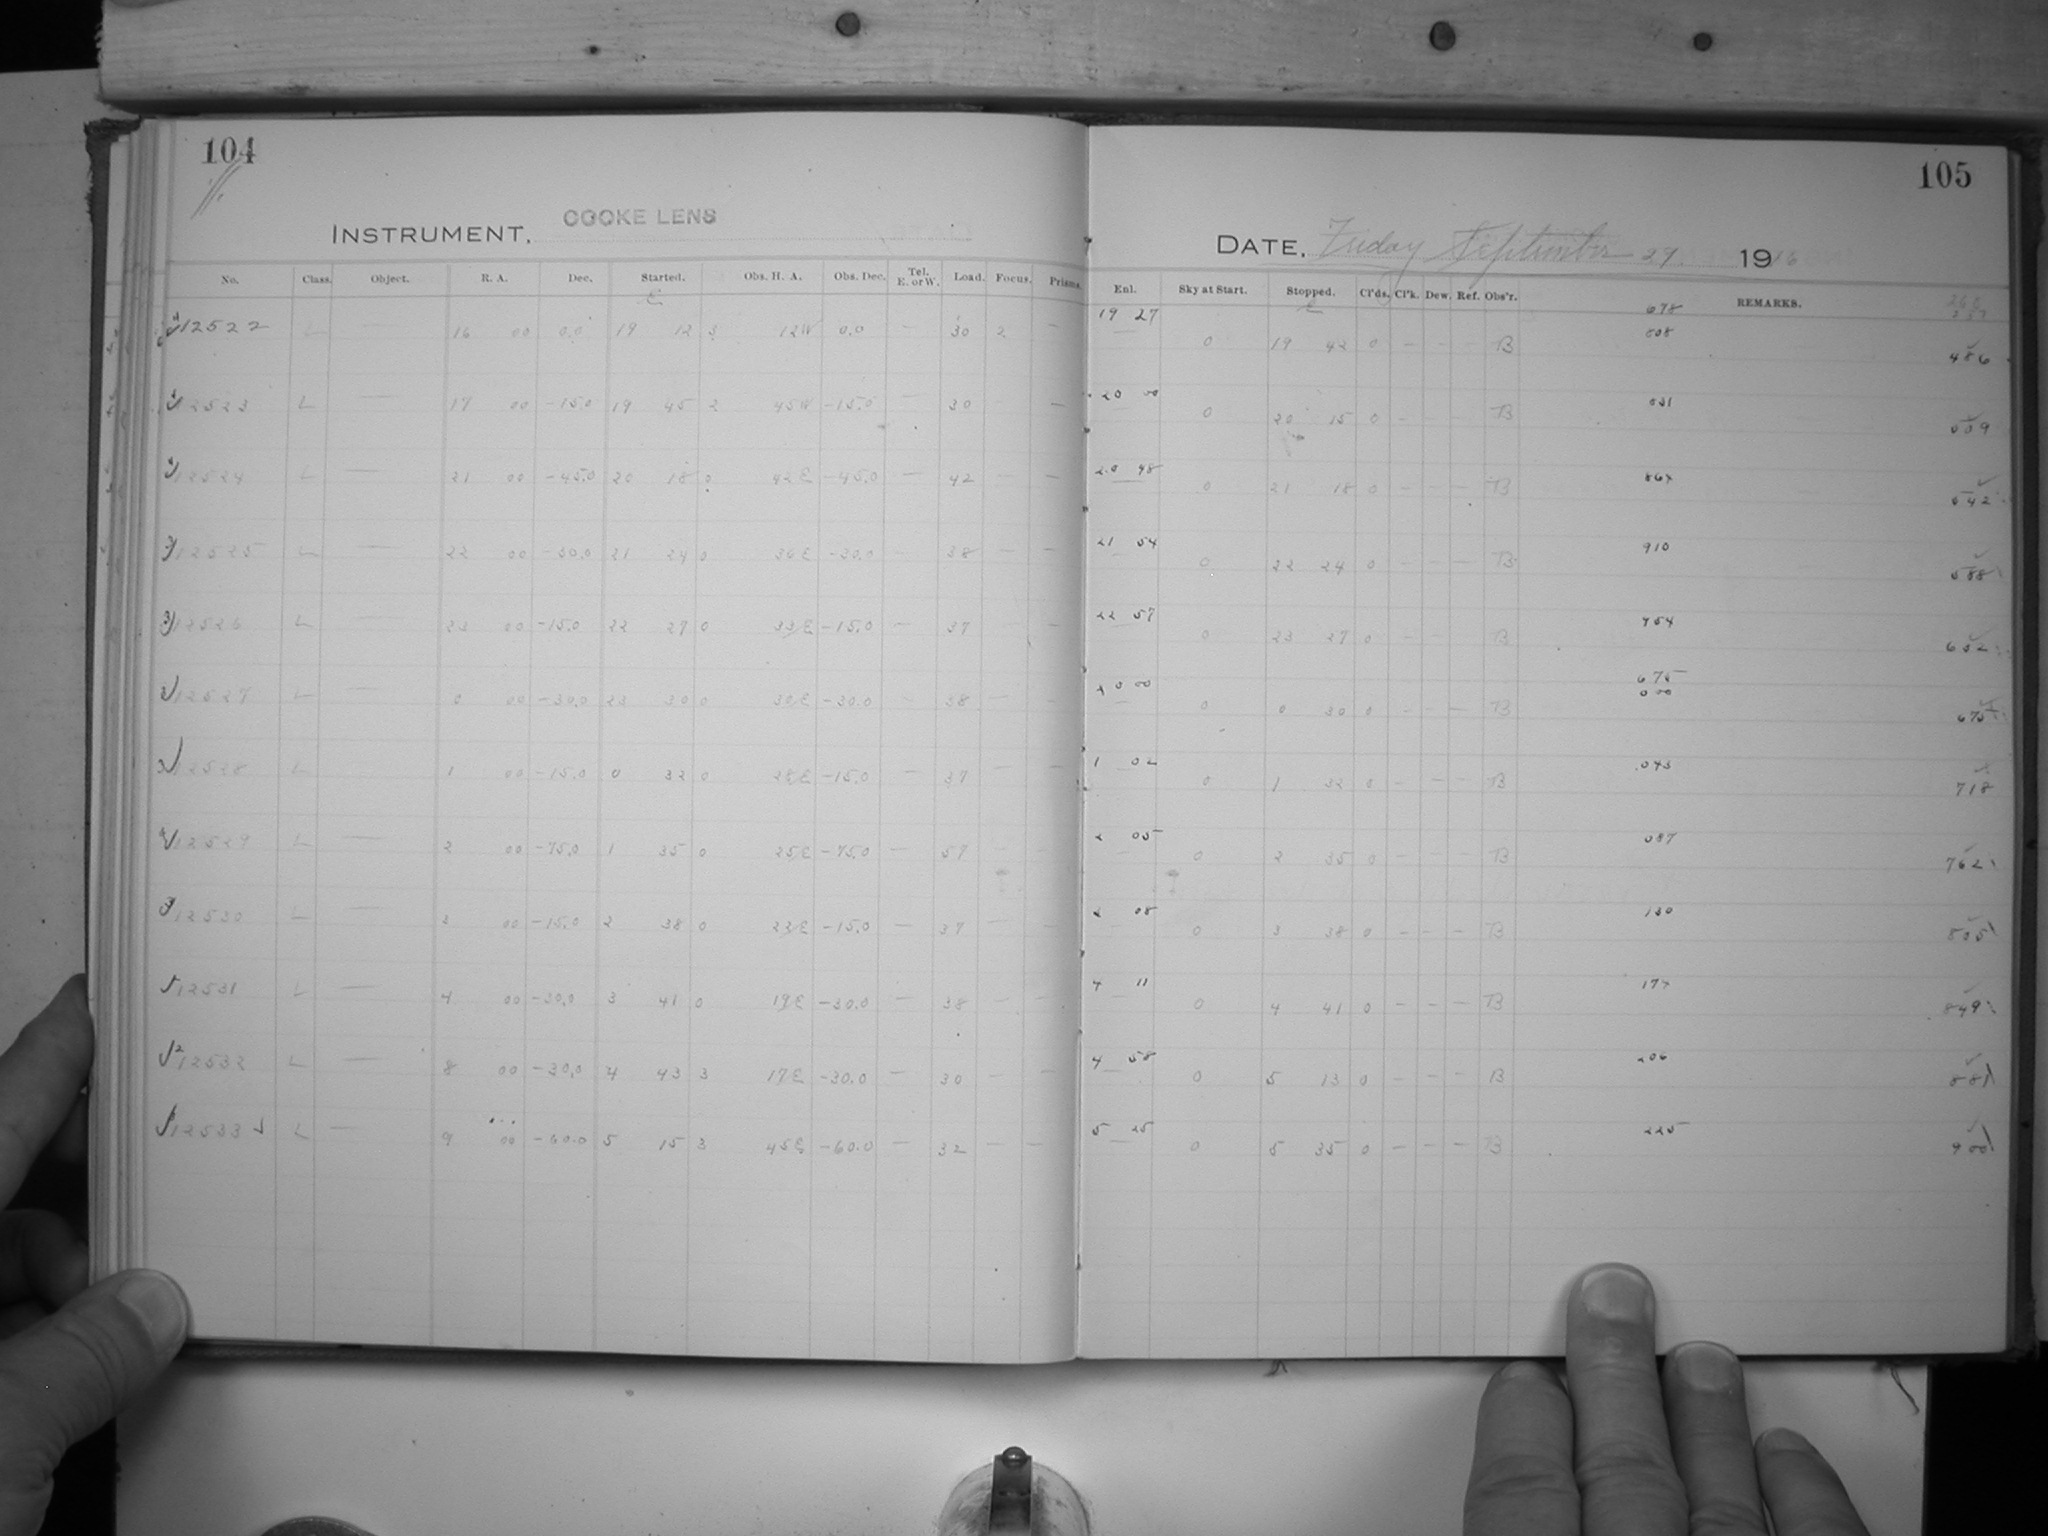 104
105
INSTRUMENT, COOKE LENS
DATE, Friday September 29. 1916
No. Class. Object. R. A. Dec. Started. Obs. H. A. Obs. Dec. Tel. E. or W. Load. Focus. Prisms. Enl. Sky at Start. Stopped. Cl'ds. Cl'k. Dew. Ref. Obs'r. REMARKS.
12522 L — 16 00 0.0 19 12 3 12W 0.0 — 30 2 — 19 27 0 19 42 0 — — — B 678 808 486
12523 L — 17 00 -15.0 19 45 2 45W -15.0 — 30 — 20 00 0 20 15 0 — — — B 831 509
12524 L — 21 00 -45.0 20 18 0 42E -45.0 — 42 — — 20 48 0 21 18 0 — — — B 864 542
12525 L — 22 00 -30.0 21 24 0 36E -30.0 — 38 — — 21 54 0 22 24 0 — — — B 910 588
12526 L — 23 00 -15.0 22 27 0 33E -15.0 — 37 — — 22 57 0 23 27 0 — — — B 954 632
12527 L — 0 00 -30.0 23 30 0 30E -30.0 — 38 — — 0 00 0 0 30 0 — — — B 675 000 675
12528 L — 1 00 -15.0 0 32 0 28E -15.0 — 37 — — 1 02 0 1 32 0 — — — B .043 718
12529 L — 2 00 -75.0 1 35 0 25E -75.0 — 57 — — 2 05 0 2 35 0 — — — B 087 762
12530 L — 3 00 -15.0 2 38 0 22E -15.0 — 37 — — 08 0 3 38 0 — — — B 130 805
12531 L — 4 00 -30.0 3 41 0 19E -30.0 — 38 — — 4 11 0 4 41 0 — — — B 174 849
12532 L — 8 00 -30.0 4 43 3 17E -30.0 — 30 — — 4 58 0 5 13 0 — — — B 206 881
12533 L — 9 00 -60.0 5 15 3 45E -60.0 — 32 — — 5 25 0 5 35 0 — — — B 225 900